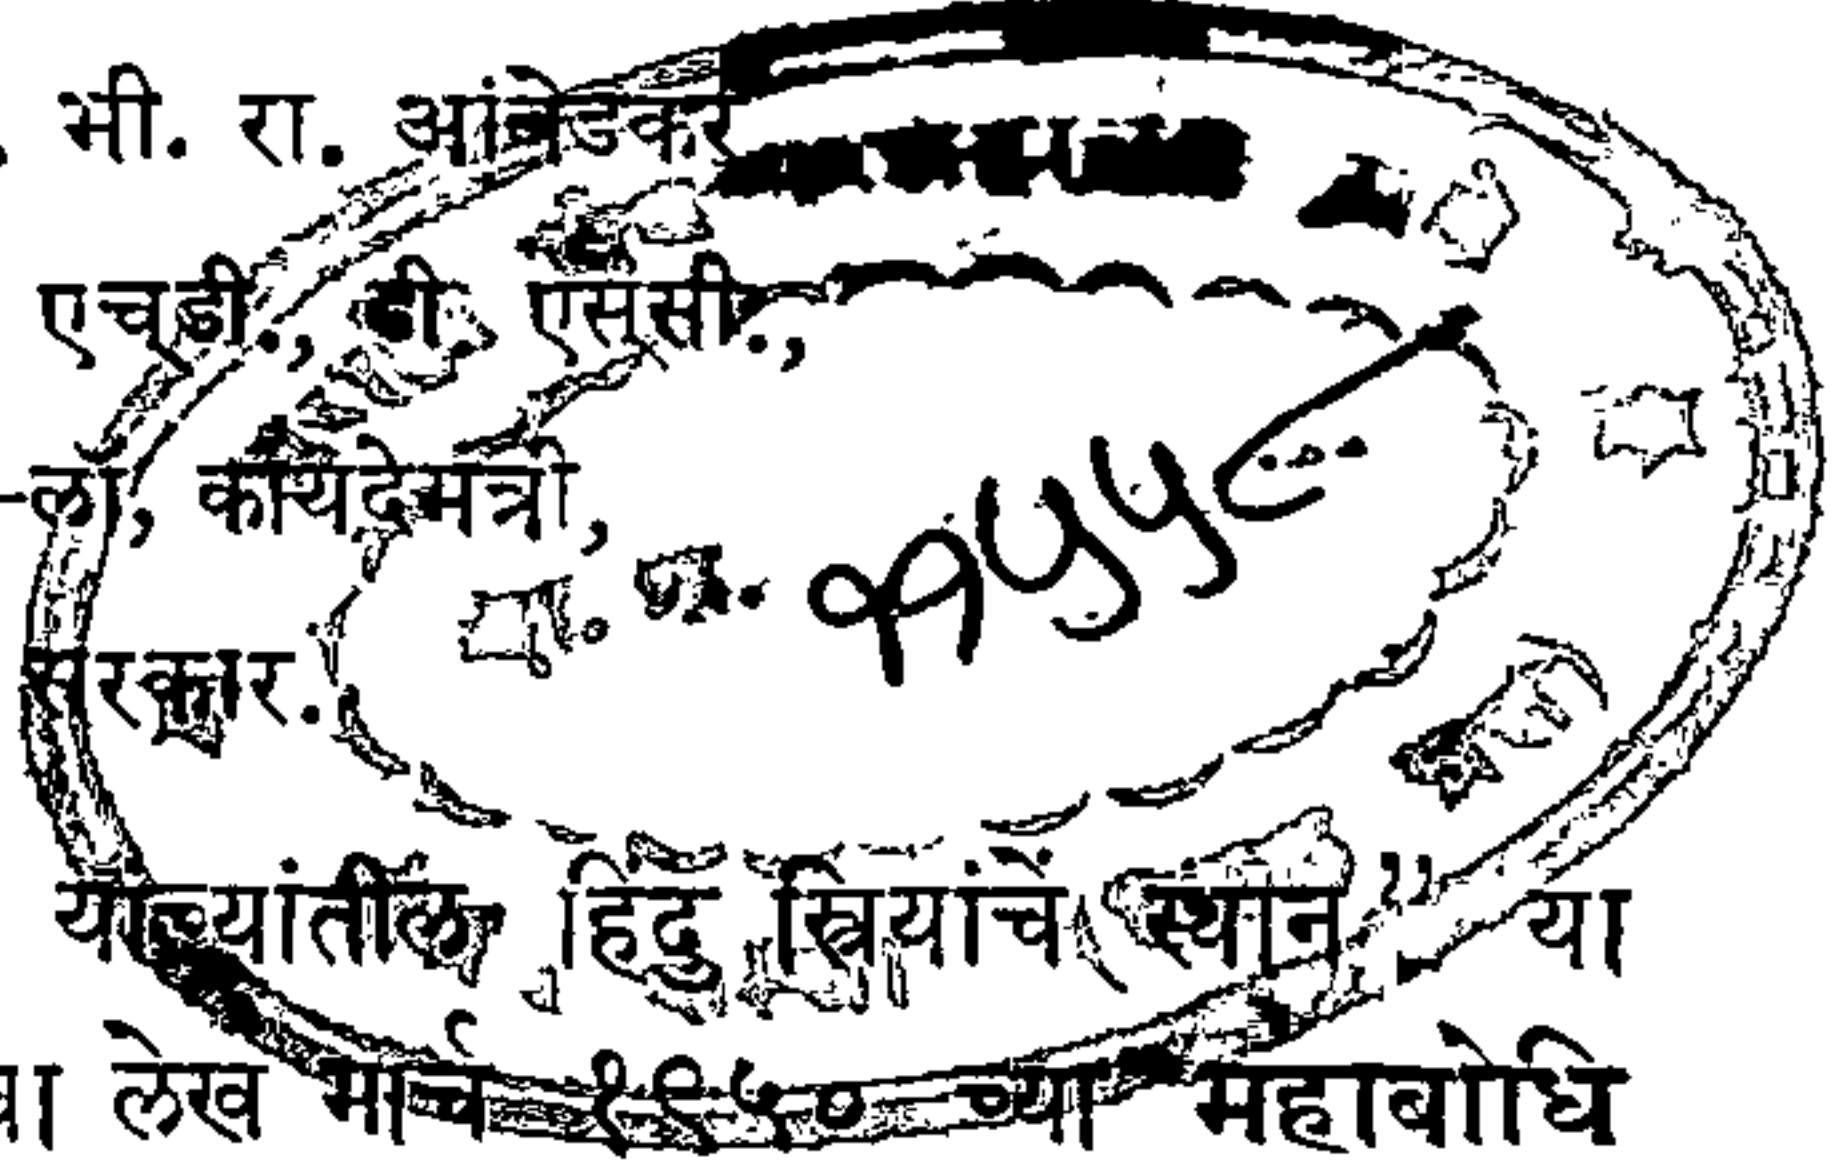 . भी. रा. आंबेडकर
एच्‌डी., डी. एस्‌सी.,
-लॉ, कायदेमंत्री,
१५५८
सरकार.
यांच्यांतील हिंदु स्त्रियांचें स्थान ” या
चा लेख मार्च १९५० च्या महाबोधि